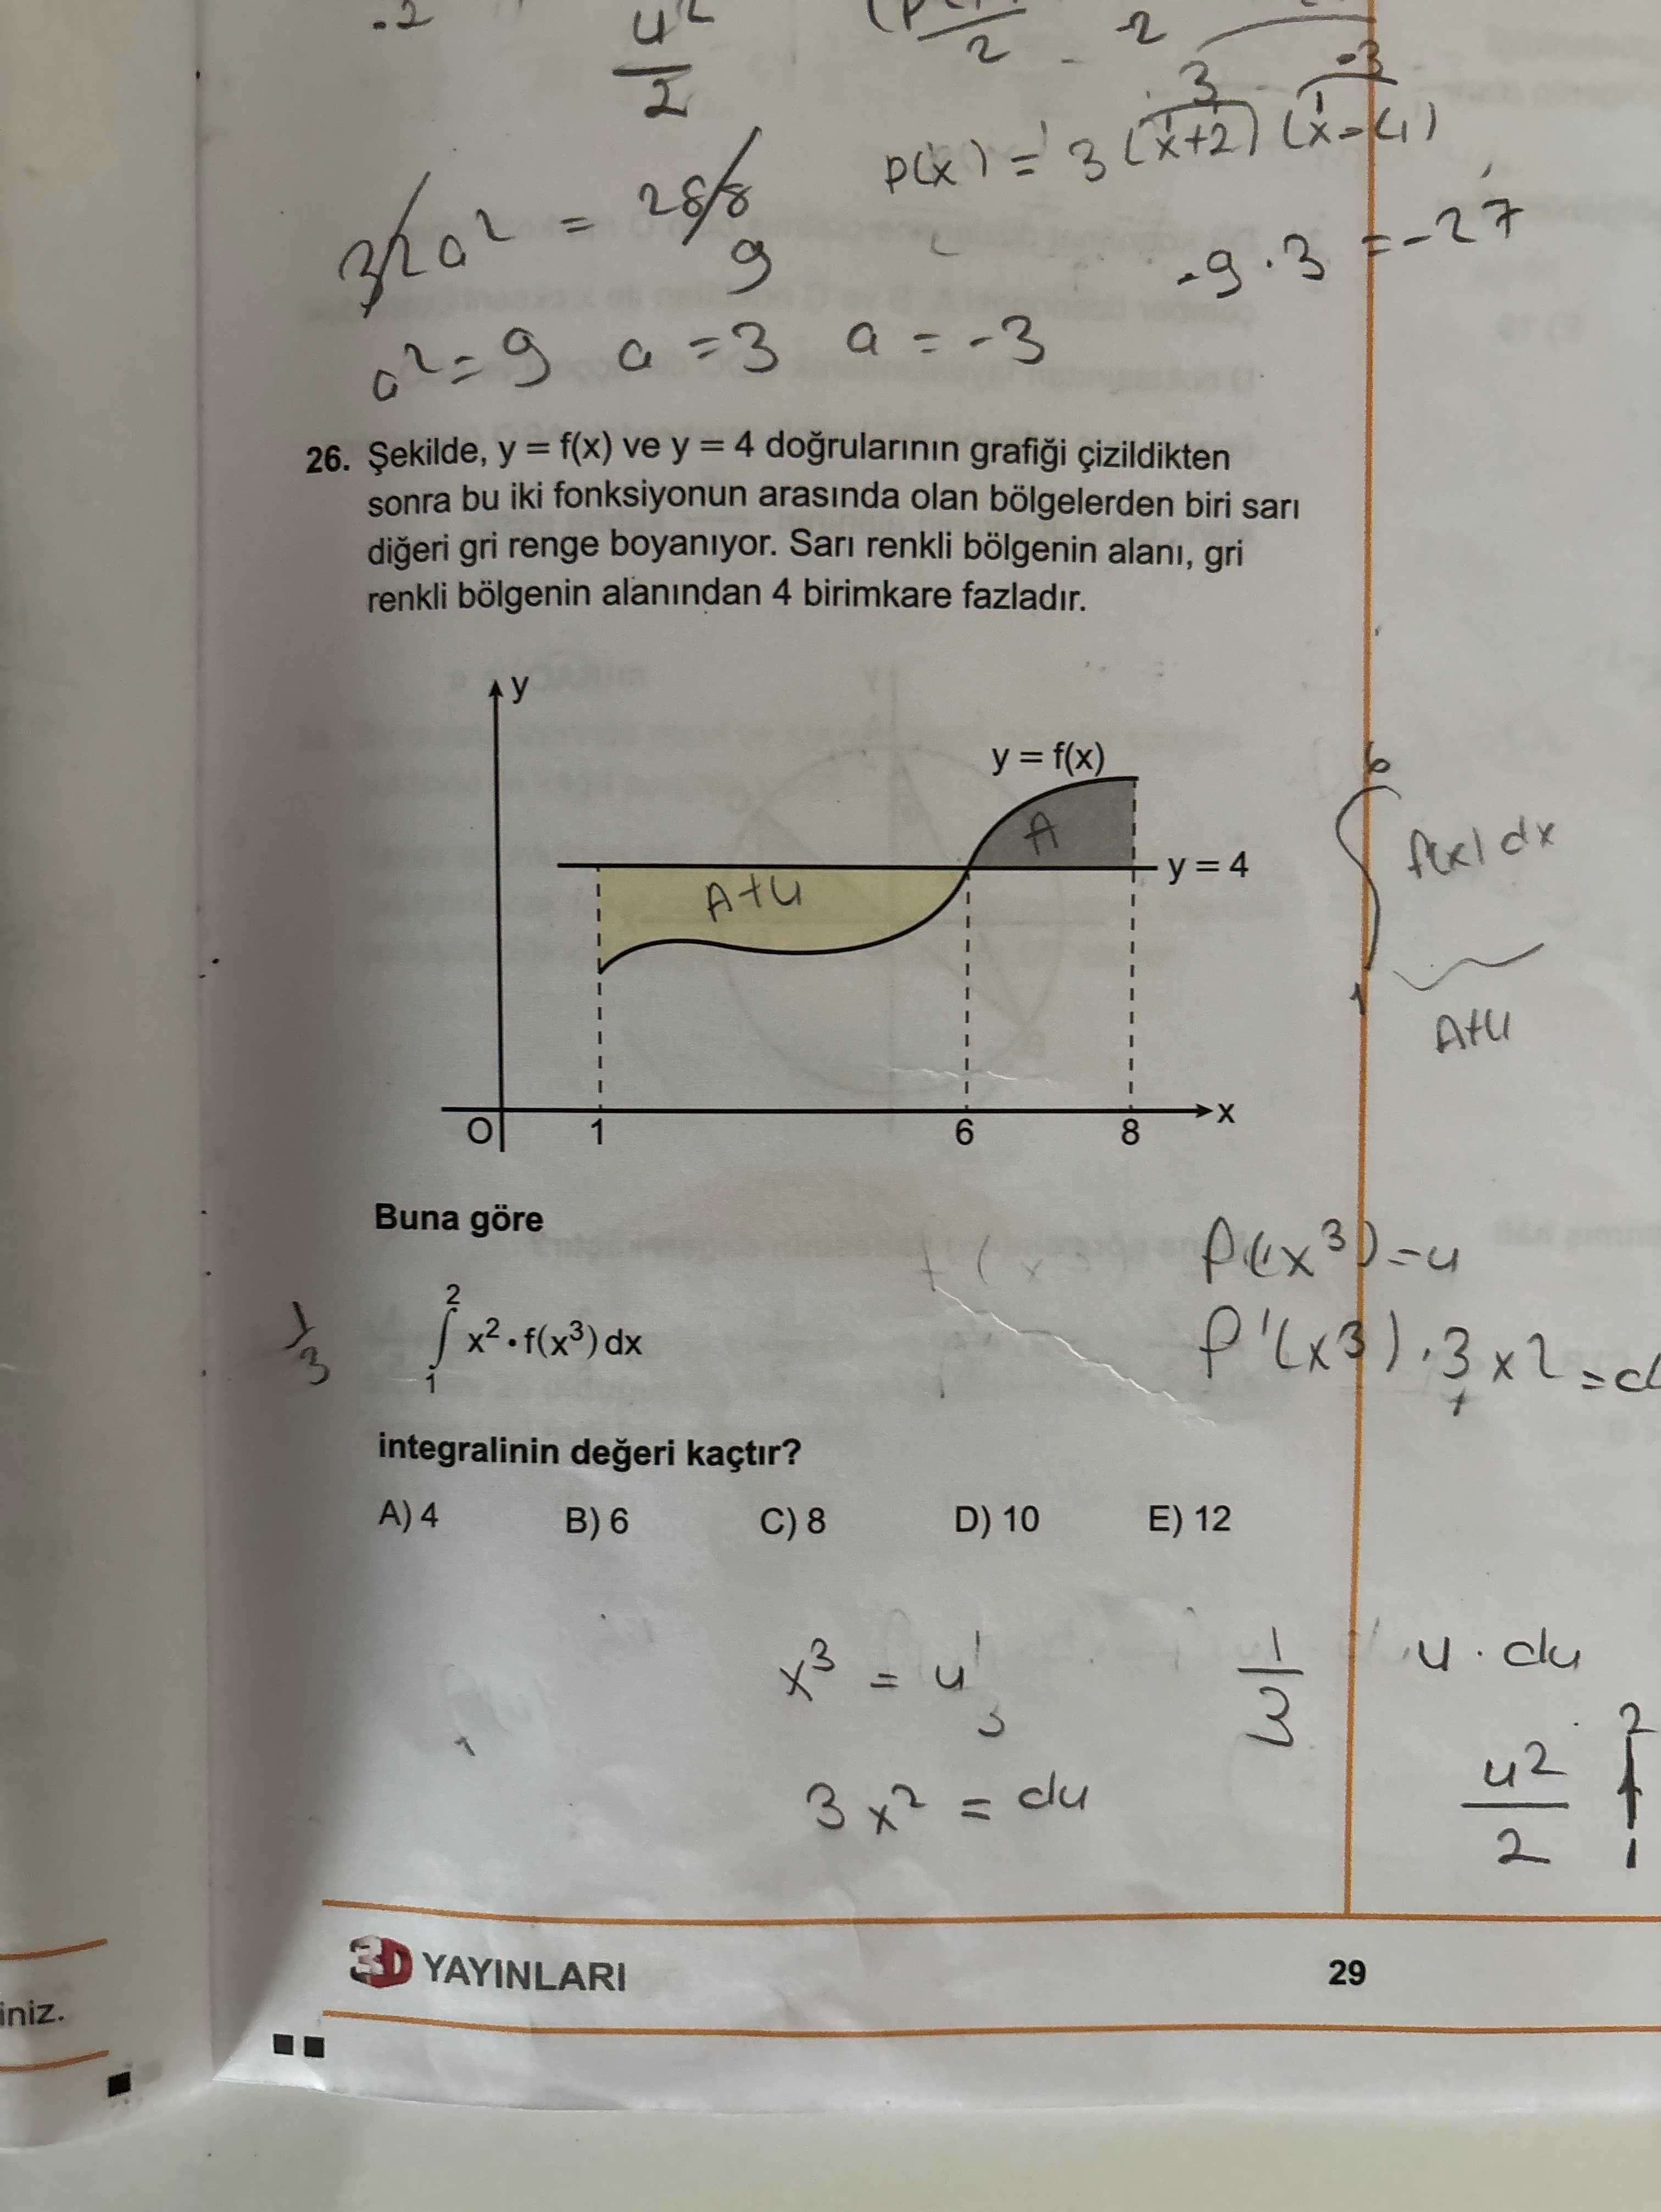 -2
u²/2
2 - 2
-3
3
P(x) = 3(x+2)(x-4)
32a² = 288/9
-9.3 = -27
a² = 9 a = 3 a = -3
26. Şekilde, y = f(x) ve y = 4 doğrularının grafiği çizildikten
sonra bu iki fonksiyonun arasında olan bölgelerden biri sarı
diğeri gri renge boyanıyor. Sarı renkli bölgenin alanı, gri
renkli bölgenin alanından 4 birimkare fazladır.
y
y = f(x)
A
y = 4
A+4
O 1 6 8 x
6
∫ f(x) dx
1
A+4
Buna göre
1/3
2
∫ x² • f(x³) dx
1
f(x³) = u
f'(x³) . 3x² = d
integralinin değeri kaçtır?
A) 4 B) 6 C) 8 D) 10 E) 12
x³ = u
1/3 u . du
3x² = du
u²/2 2 1
3D YAYINLARI
29
iniz.